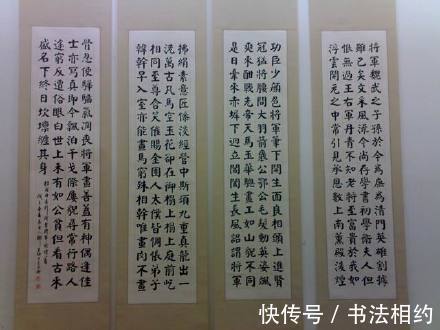 將軍魏武之子孫於今為庶為清門英雄割據
雖已矣文采風流今尚存學書初學衛夫人但
恨無過王右軍丹青不知老將至富貴於我如
浮雲開元之中常引見承恩數上南薰殿凌煙
功臣少顏色將軍筆下開生面良相頭上進賢
冠猛將腰間大羽箭褒公鄂公毛髮動英姿颯
爽來酣戰先帝天馬玉華驄畫工如山貌不同
是日牽來赤墀下迥立閶闔生長風詔謂將軍
拂絹素意匠慘淡經營中斯須九重真龍出一
洗萬古凡馬空玉花卻在御榻上榻上庭前屹
相向至尊含笑催賜金圉人太僕皆惆悵弟子
韓幹早入室亦能畫馬窮殊相幹唯畫肉不畫
骨忍使驊騮氣凋喪將軍畫善蓋有神偶逢佳
士亦寫真即今飄泊干戈際屢貌尋常行路人
途窮反遭俗眼白世上未有如公貧但看古來
盛名下終日坎壈纏其身
快传号 / 书法相约